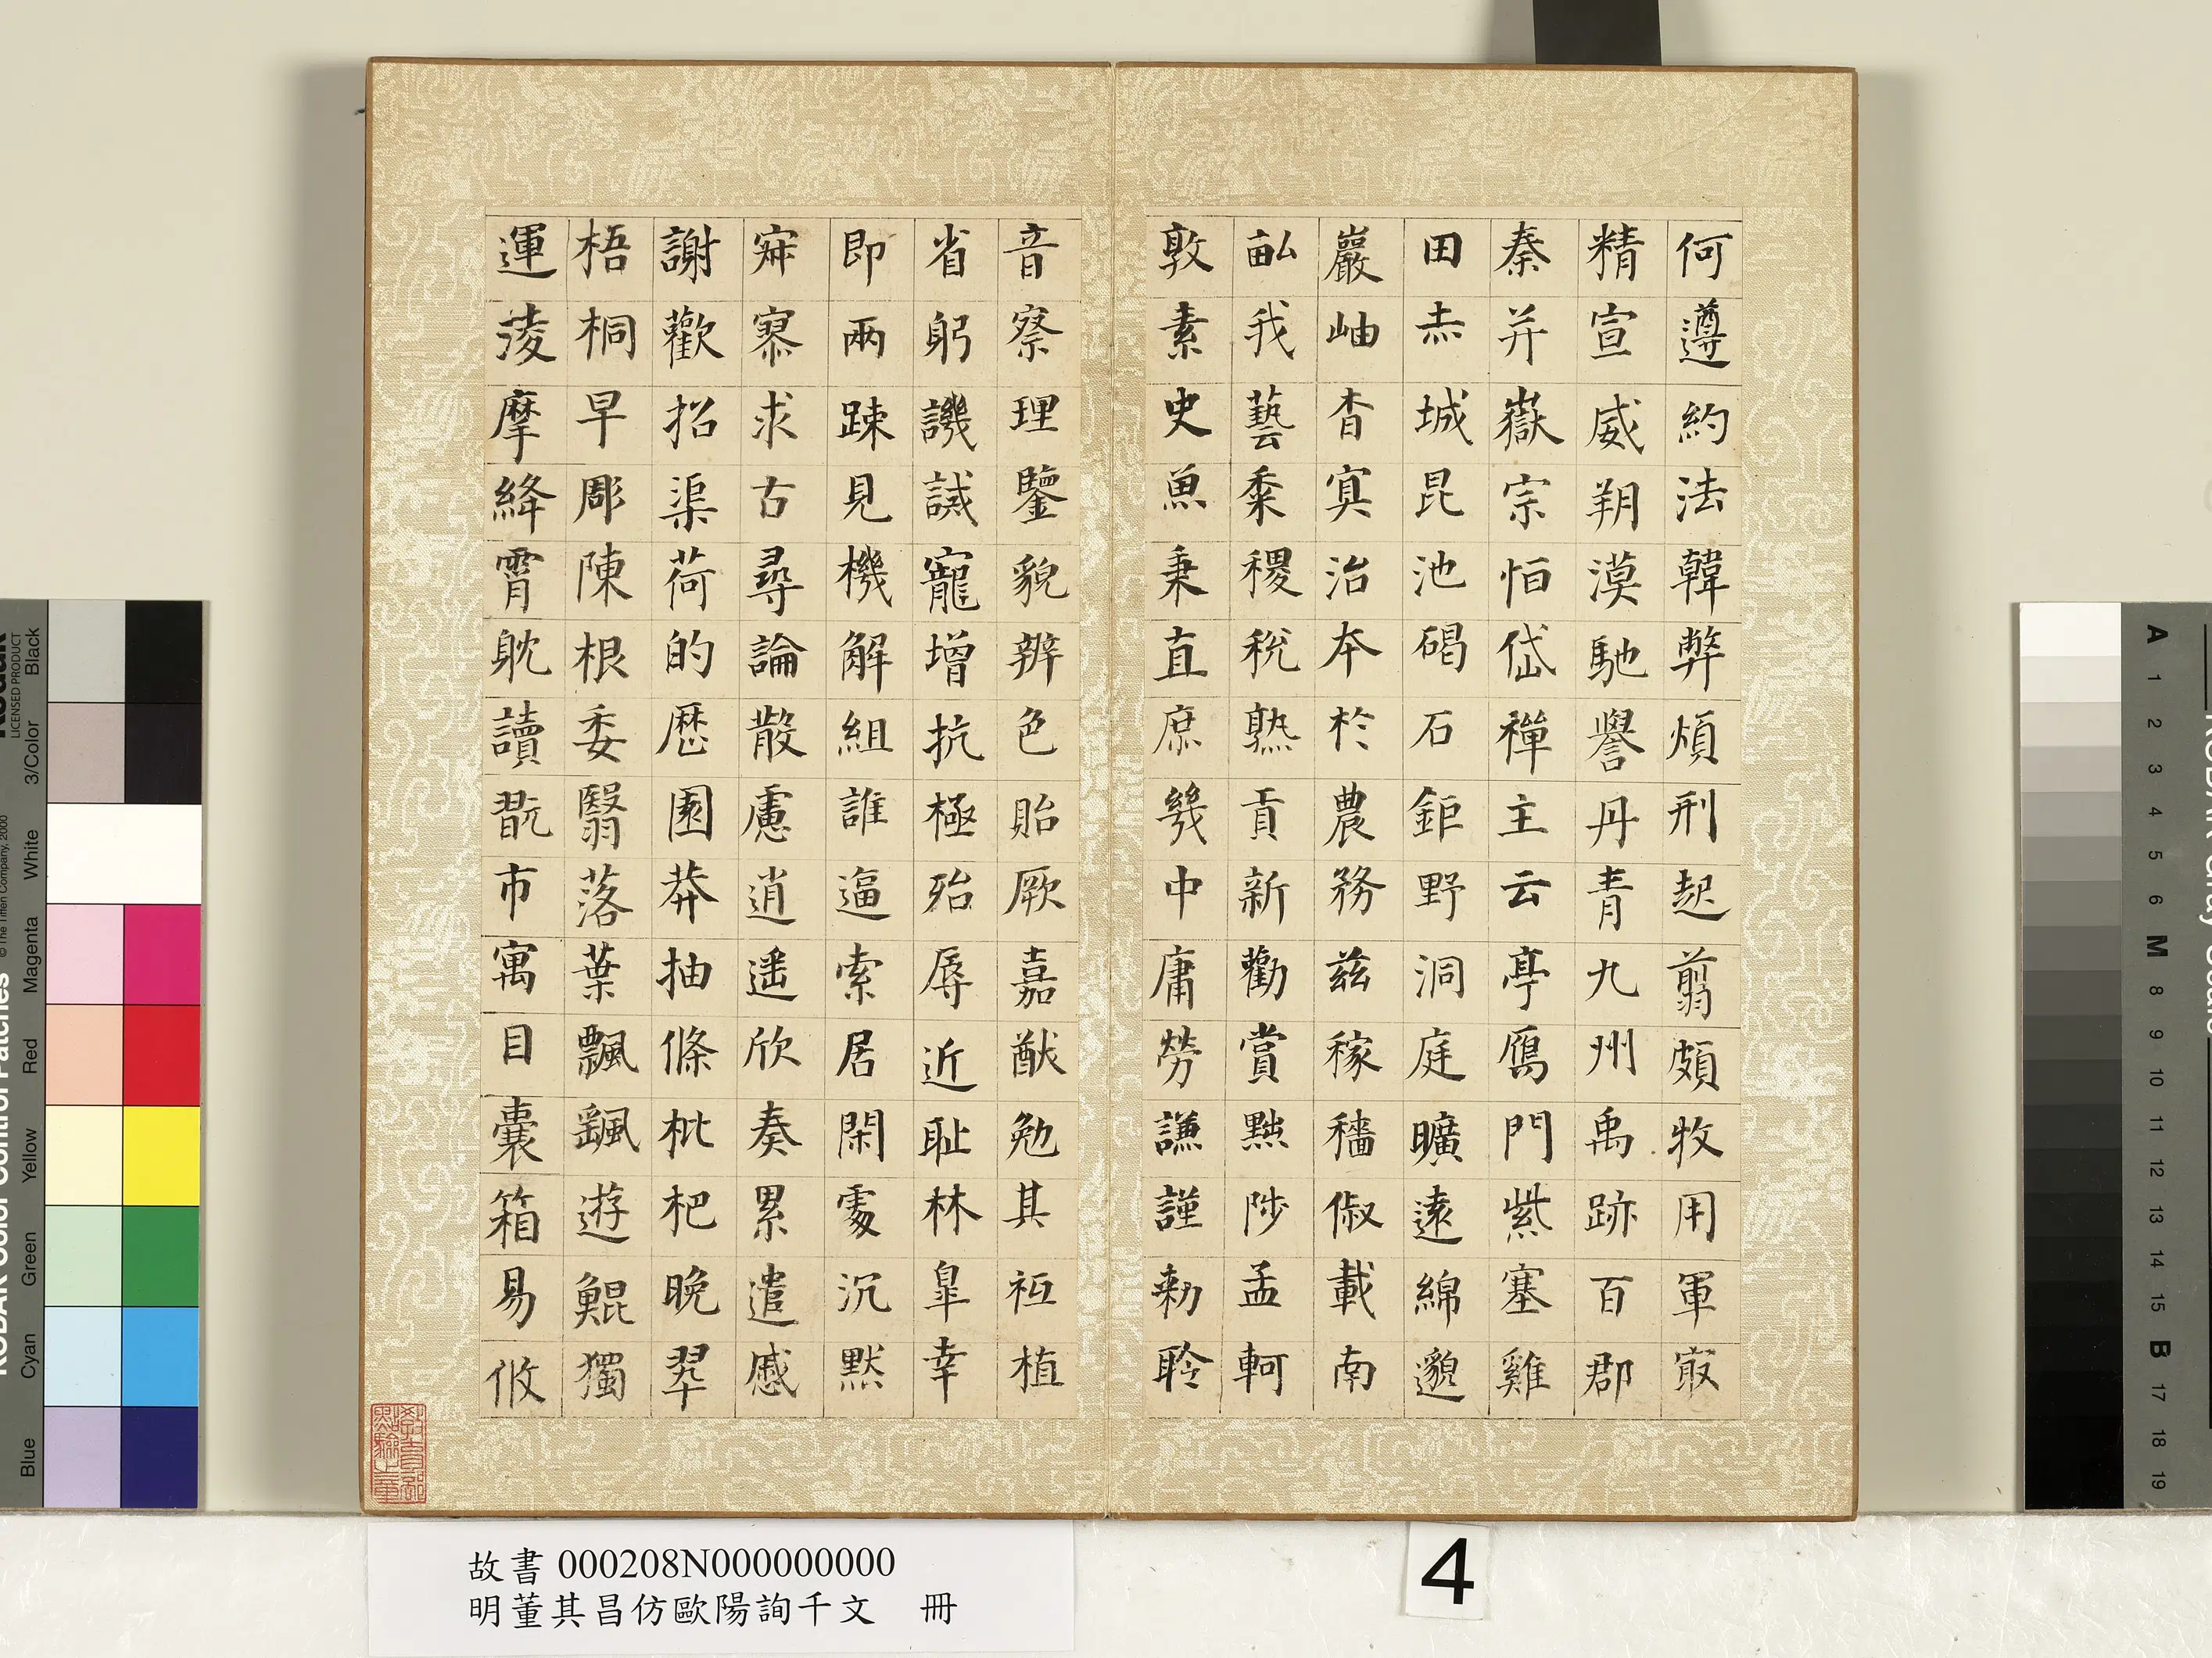 何遵約法韓弊煩刑起翦頗牧用軍冣
精宣威朔漠馳譽丹青九州禹跡百郡
秦并嶽宗恒岱禪主云亭鴈門紫塞雞
田赤城昆池碣石鉅野洞庭曠遠綿邈
巖岫杳冥治本於農務茲稼穡俶載南
畝我藝黍稷稅熟貢新勸賞黜陟孟軻
敦素史魚秉直庶幾中庸勞謙謹勑聆
音察理鑒貌辨色貽厥嘉猷勉其祗植
省躬譏誡寵增抗極殆辱近恥林皐幸
即兩疎見機解組誰逼索居閑處沉默
寂寥求古尋論散慮逍遙欣奏累遣慼
謝歡招渠荷的歷園莽抽條枇杷晚翠
梧桐早彫陳根委翳落葉飄颻遊鯤獨
運淩摩絳霄躭讀翫市寓目囊箱易攸
故書 000208N000000000
明董其昌仿歐陽詢千文 冊
4
KODAK Color Control Patches
© The Tiffen Company, 2000
Kodak
LICENSED PRODUCT
Blue Cyan Green Yellow Red Magenta White 3/Color Black
KODAK Gray Scale
A 1 2 3 4 5 6 M 8 9 10 11 12 13 14 15 B 17 18 19